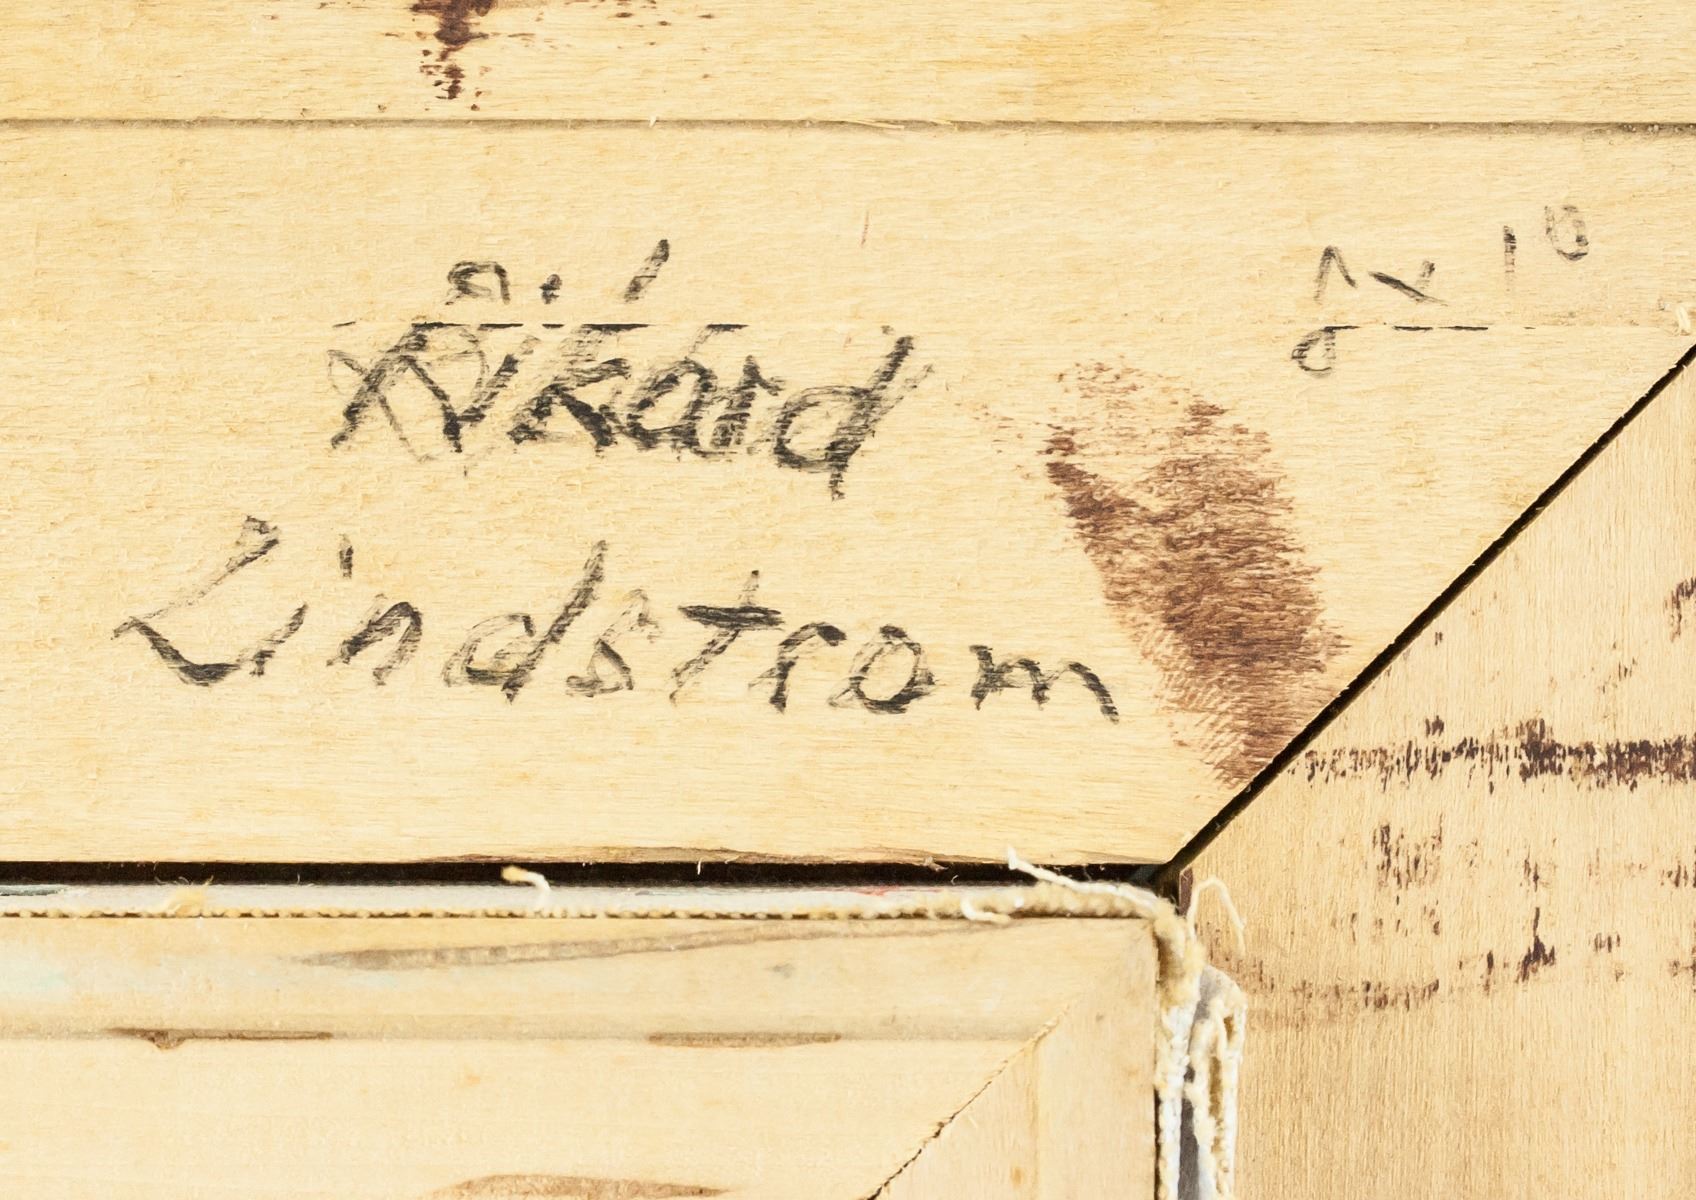 Rikard
Lindstrom